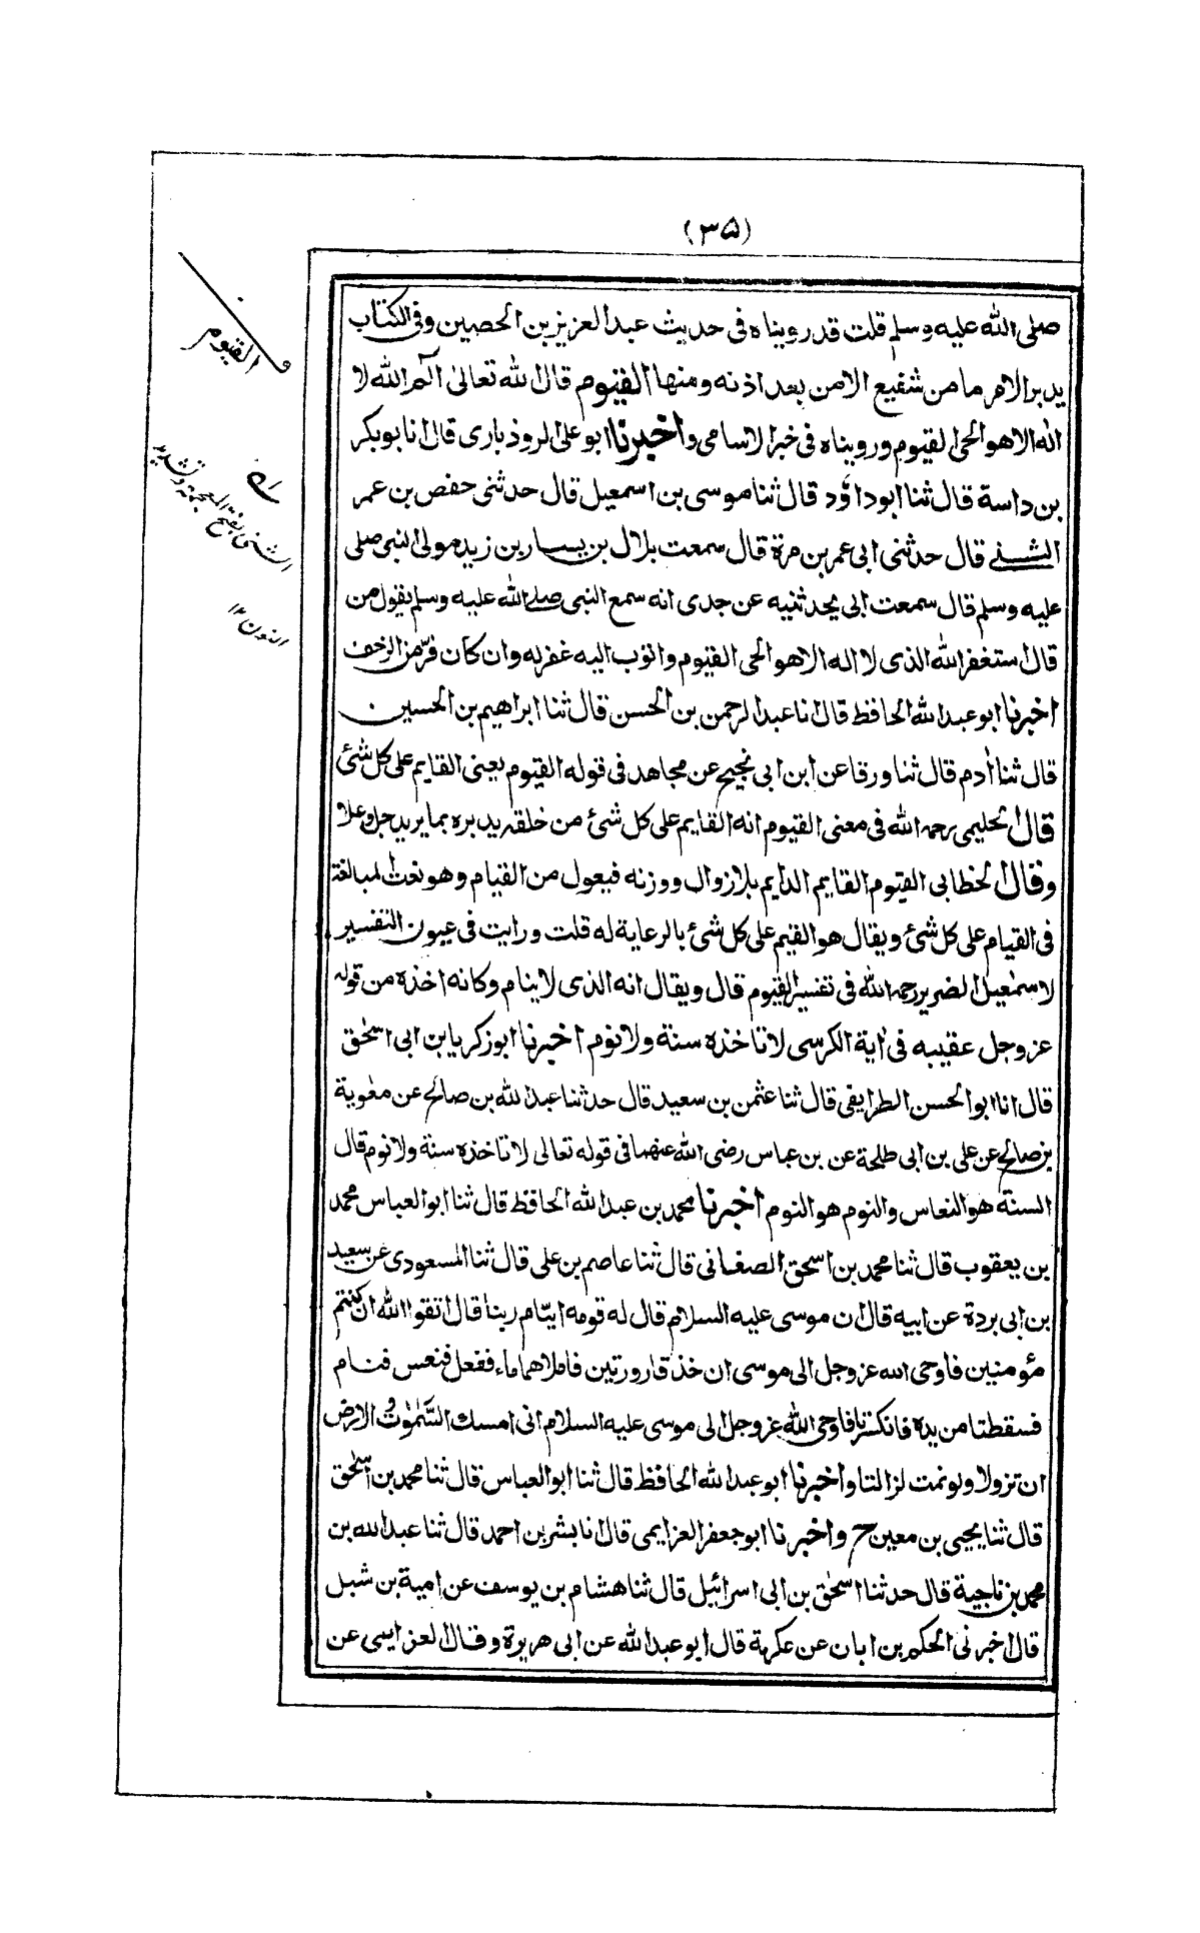 (۳۵)
صلى الله عليه وسلم قلت قد رويناه فى حديث عبد العزيز بن الحصين وفى الكتاب
يدبر الامر ما من شفيع الا من بعد اذنه ومنها القيوم قال الله تعالى الٓم الله لا
اله الا هو الحى القيوم ورويناه فى خبر الاسامى واخبرنا ابو على الروذبارى قال انا بو بكر
بن داسة قال ثنا ابو داود قال ثنا موسى بن اسمعيل قال حدثنى حفص بن عمر
الشنى قال حدثنى ابى عمر بن مرة قال سمعت بلال بن يسار بن زيد مولى النبى صلى
عليه وسلم قال سمعت ابى يحدثنيه عن جدى انه سمع النبى صلى الله عليه وسلم يقول من
قال استغفر الله الذى لا اله الا هو الحى القيوم واتوب اليه غفر له وان كان فرّ من الزحف
اخبرنا ابو عبد الله الحافظ قال انا عبد الرحمن بن الحسن قال ثنا ابراهيم بن الحسين
قال ثنا اٰدم قال ثنا ورقا عن ابن ابى نجيح عن مجاهد فى قوله القيوم يعنى القايم على كل شئ
قال الحليمى رحمه الله فى معنى القيوم انه القايم على كل شئ من خلقه يدبره بما يريد جل وعلا
وقال الخطابى القيوم القايم الدايم بلا زوال ووزنه فيعول من القيام وهو نعت المبالغة
فى القيام على كل شئ ويقال هو القيم على كل شئ بالرعاية له قلت ورايت فى عيون التفسير
لاسمعيل الضرير رحمه الله فى تفسير القيوم قال ويقال انه الذى لا ينام وكانه اخذه من قوله
عز وجل عقيبه فى اٰية الكرسى لا تاخذه سنة ولا نوم اخبرنا ابو زكريا بن ابى اسحٰق
قال انا ابو الحسن الطرايفى قال ثنا عثمن بن سعيد قال حدثنا عبد الله بن صالح عن معٰوية
بن صالح عن على بن ابى طلحة عن بن عباس رضى الله عنهما فى قوله تعالى لا تاخذه سنة ولا نوم قال
السنة هو النعاس والنوم هو النوم اخبرنا محمد بن عبد الله الحافظ قال ثنا ابو العباس محمد
بن يعقوب قال ثنا محمد بن اسحق الصغانى قال ثنا عاصم بن على قال ثنا المسعودى عن سعيد
بن ابى بردة عن ابيه قال ان موسى عليه السلام قال له قومه اينام ربنا قال اتقوا الله ان كنتم
مؤمنين فاوحى الله عز وجل الى موسى ان خذ قارورتين فاملاهما ماء ففعل فنعس فنام
فسقطتا من يده فانكسرتا فاوحى الله عز وجل الى موسى عليه السلام انى امسك السمٰوٰت والارض
ان تزولا ولو نمت لزالتا واخبرنا ابو عبد الله الحافظ قال ثنا ابو العباس قال ثنا محمد بن اسحٰق
قال ثنا يحيى بن معين ح واخبرنا ابو جعفر العزايمى قال انا بشر بن احمد قال ثنا عبد الله بن
محمد بن ناجية قال حدثنا اسحٰق بن ابى اسرائيل قال ثنا هشام بن يوسف عن امية بن شبل
قال اخبرنى الحكم بن ابان عن عكرمة قال ابو عبد الله عن ابى هريرة وقال العزايمى عن
القيوم
الشنى بفتح المعجمة وتشديد
النون ١٢